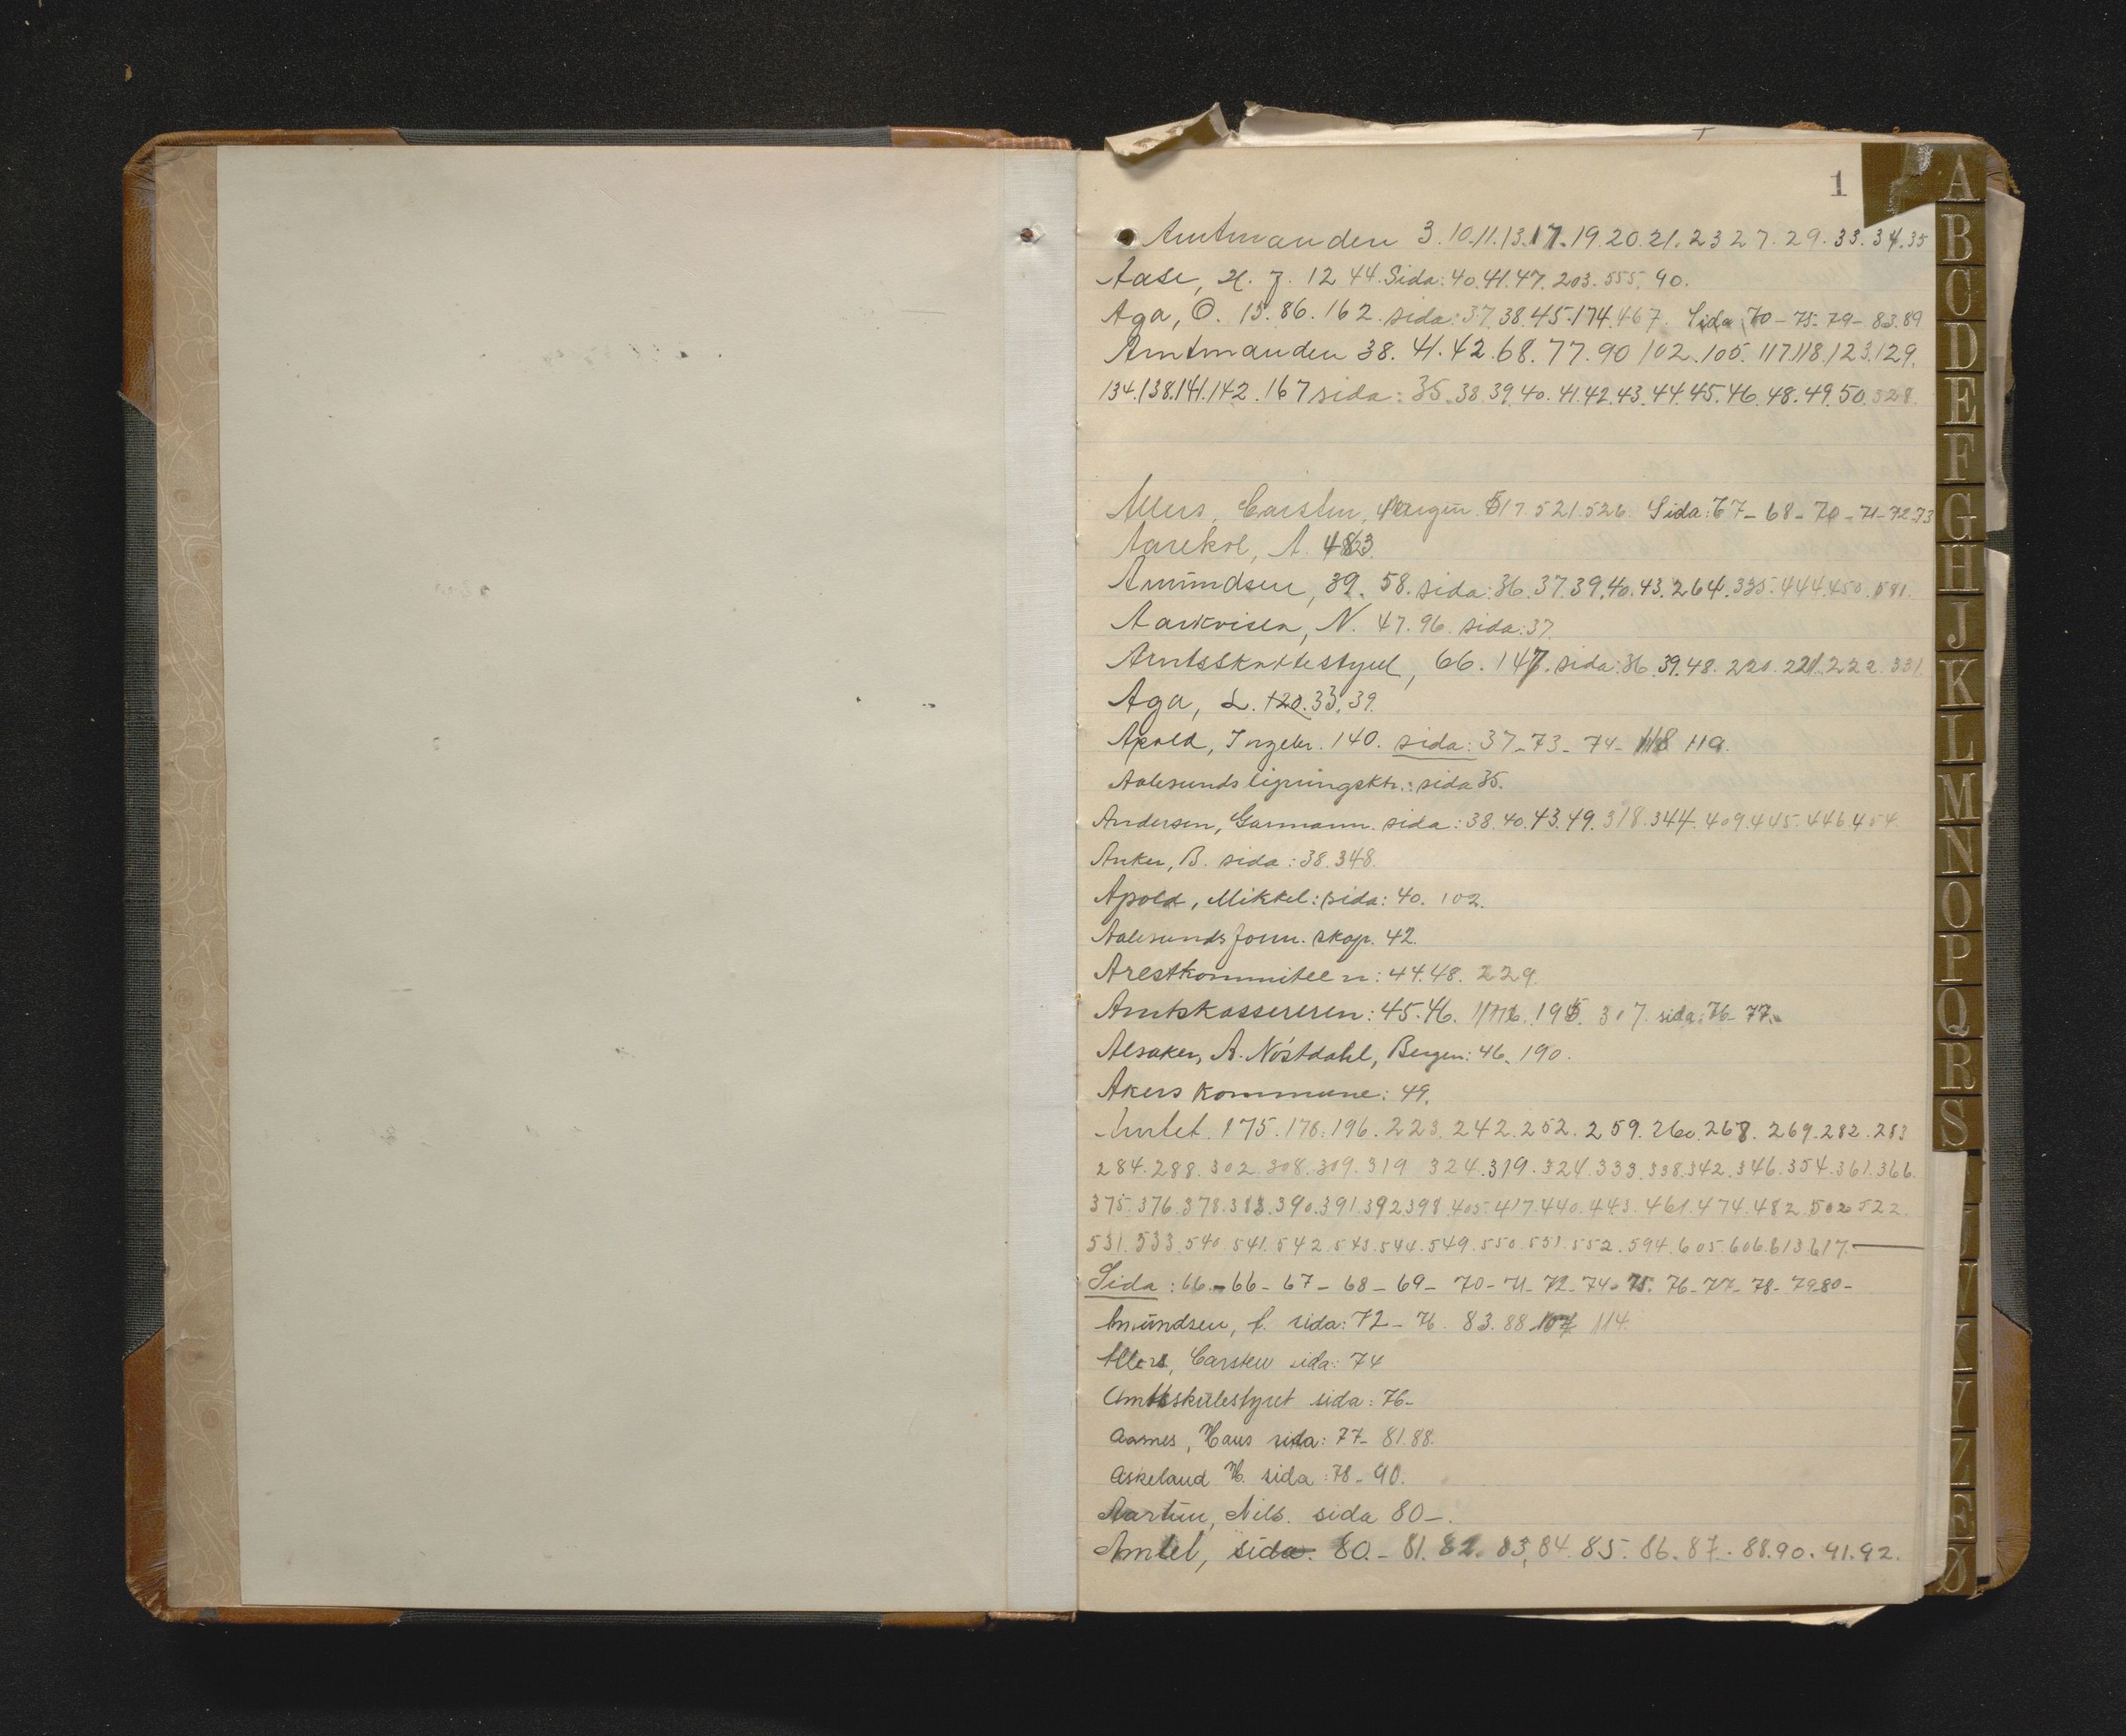 1
Amtmanden 3.10.11.13.17.19.20.21.23 27.29.33.34.35
Aase, H. J. 12 44. Sida: 40.41.47.203.555.90.
Aga, O. 15.86.162. sida: 37.38.45.174.467. Sida 70-75-79-83.89
Amtmanden 38.41.42.68.77.90 102.105.117.118.123.129.
134.138.141.142.167 sida: 35.38.39.40.41.42.43.44.45.46.48.49.50.328.
Allers, Carsten, 517.521.526. Sida: 67-68-70-71-72-73
A.
Amundsen, 39.58. sida: 36.37.39.40.43.264.335.444.450.581.
N. 47.96. sida: 37.
Amtsskattestyret, 66.147. sida: 36.39.48.220.221.222.331.
Aga, L. 120.33.39.
Apold, Ingebr. 140. sida: 37-73-74-118 119.
Aalesunds ligningsktr.: sida 35.
Andersen, Garmann. sida: 38.40.43.49.318.344.409.445.446 454.
Anker, B. sida: 38.348.
Apold, Mikkel: sida: 40.102.
Aalesunds 42.
Arestkommiteen: 44.48.229.
Amtskassereren: 45.46. 195. 307. sida: 76-77.
Alsaker, A. Nøstdahl, Bergen: 46.190.
Akers kommune: 49.
Amtet 175.178.196.223.242.252.259.260.268.269.282.283
284.288.302.308.309.319 324.319.324.333.338.342.346.354.361.366.
375.376.378.383.390.391.392 398.405.417.440.443.461.474.482.502 522.
531.533.540.541.542.543.544.549.550.551.552.594.605.606.613.617.
Sida: 66-66-67-68-69-70-71-72-74-75.76-77-78-79-80-
Amundsen, sida: 72-76. 83.88 107 114.
Allers, Carsten sida: 74
Amtsskulestyret sida: 76-
Aarnes, Hans sida: 77-81.88.
Askeland H. sida: 78-90.
Nils. sida 80-.
Amtet, sida. 80-81.82.83,84.85.86.87.88.90.91.92.
A
B
C
D
E
F
G
H
J
K
L
M
N
O
P
Q
R
S
V
X
Y
Z
Æ
Ø